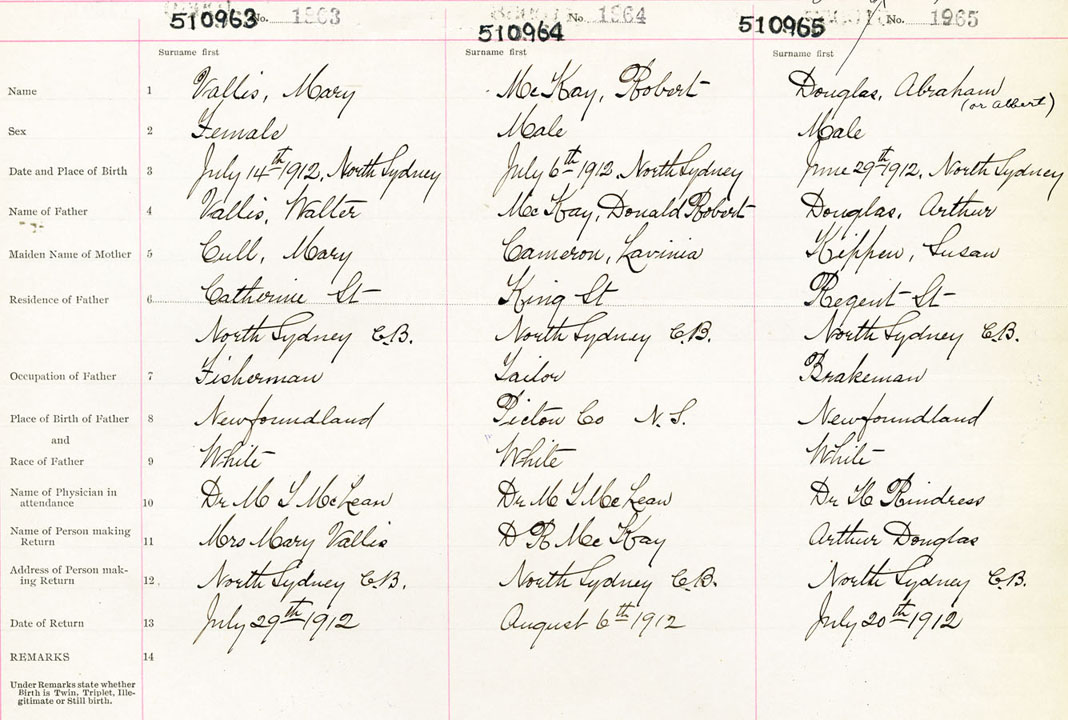 510963 No. 1963 510964 No. 1964 510965 No. 1965
Surname first Surname first Surname first
Name 1 Vallis, Mary McKay, Robert Douglas, Abraham
(or Albert)
Sex 2 Female Male Male
Date and Place of Birth 3 July 14th 1912, North Sydney July 6th 1912, North Sydney June 29th 1912, North Sydney
Name of Father 4 Vallis, Walter McKay, Donald Robert Douglas, Arthur
Maiden Name of Mother 5 Cull, Mary Cameron, Lavinia Keppen, Susan
Residence of Father 6 Catherine St King St Regent St
North Sydney C.B. North Sydney C.B. North Sydney C.B.
Occupation of Father 7 Fisherman Tailor Brakeman
Place of Birth of Father 8 Newfoundland Pictou Co N.S. Newfoundland
and
Race of Father 9 White White White
Name of Physician in
attendance 10 Dr M T McLean Dr M T McLean Dr H Rindress
Name of Person making
Return 11 Mrs Mary Vallis D R McKay Arthur Douglas
Address of Person mak-
ing Return 12 North Sydney C.B. North Sydney C.B. North Sydney C.B.
Date of Return 13 July 29th 1912 August 6th 1912 July 20th 1912
REMARKS 14
Under Remarks state whether
Birth is Twin, Triplet, Ille-
gitimate or Still birth.